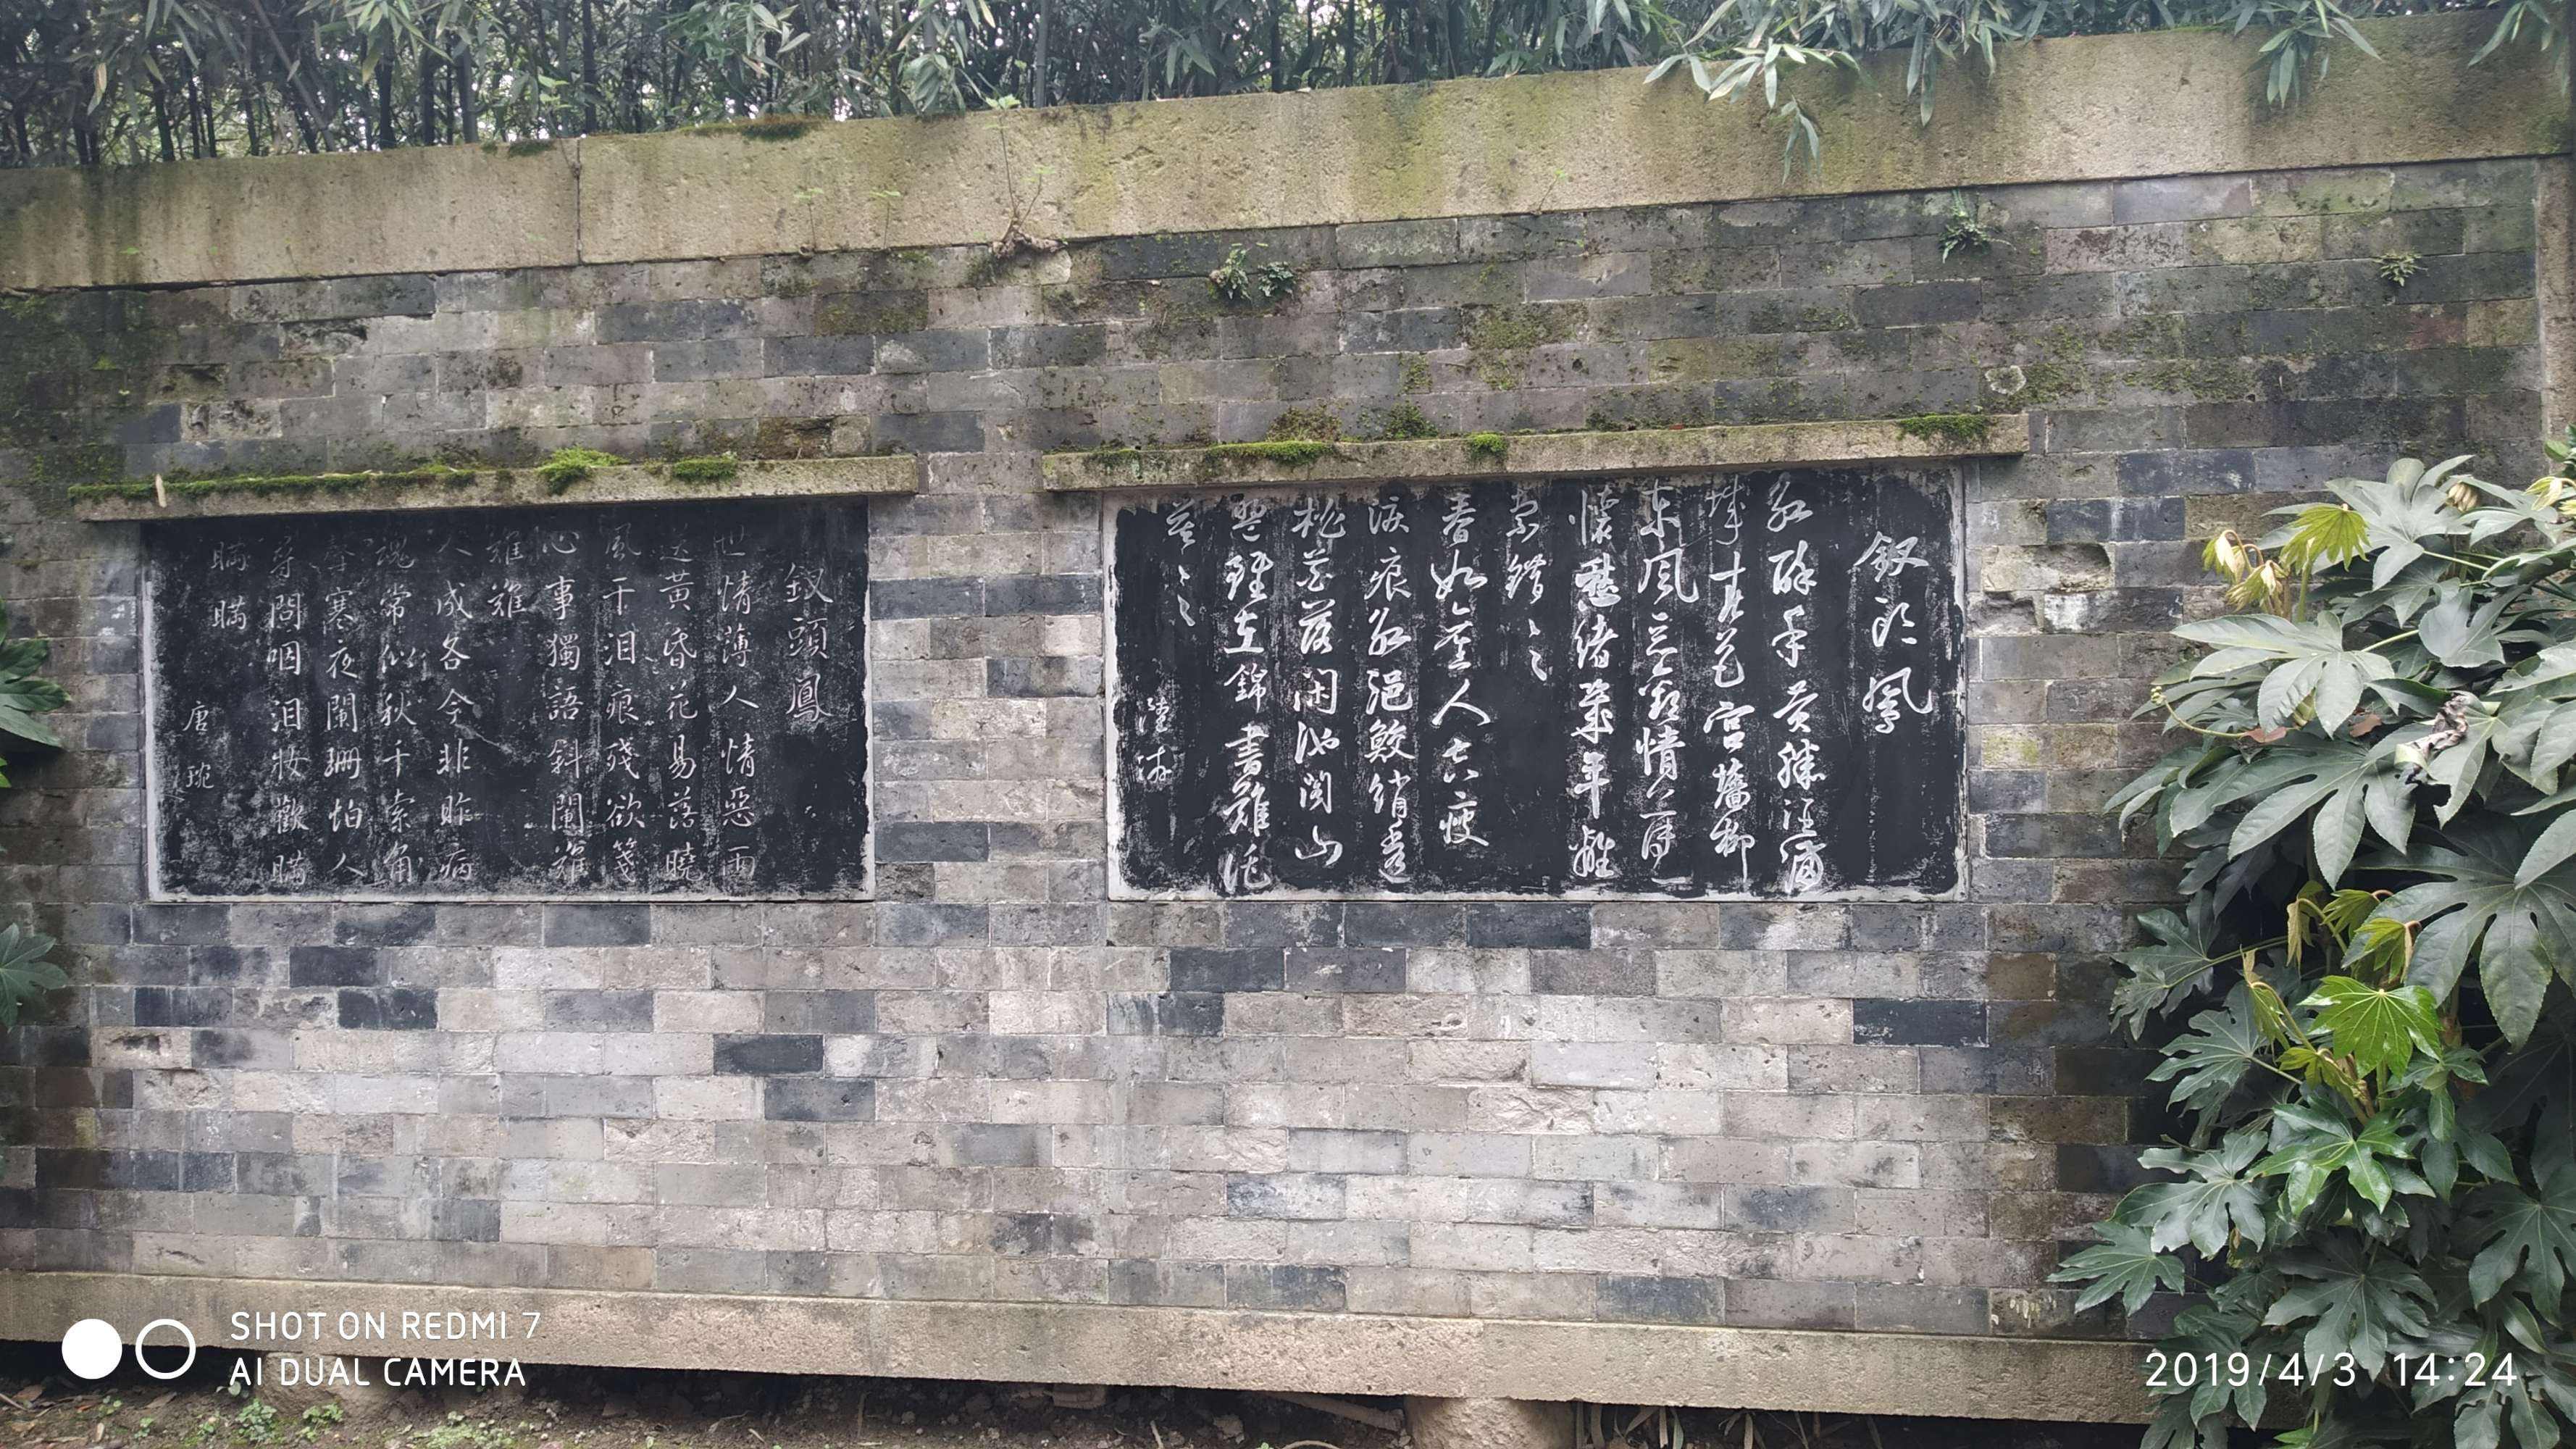 釵頭鳳
紅酥手黃縢酒滿
城春色宮牆柳
東風惡歡情薄一
懷愁緒幾年離
索錯〻〻
春如舊人空瘦
淚痕紅浥鮫綃透
桃花落閑池閣山
盟雖在錦書難託
莫〻〻
陸游
釵頭鳳
世情薄人情惡雨
送黃昏花易落曉
風干泪痕殘欲箋
心事獨語斜闌難
難難
人成各今非昨病
魂常似秋千索角
聲寒夜闌珊怕人
尋問咽泪妝歡瞞
瞞瞞
唐琬
SHOT ON REDMI 7
AI DUAL CAMERA
2019/4/3 14:24